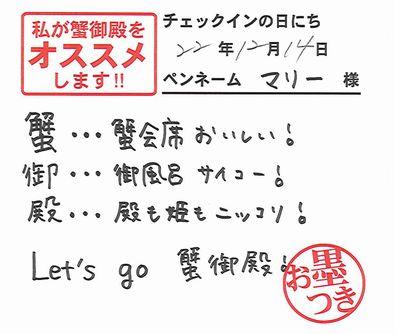 私が蟹御殿を
オススメ
します!!
チェックインの日にち
22年12月14日
ペンネーム マリー 様
蟹・・・蟹会席おいしい!
御・・・御風呂サイコー!
殿・・・殿も姫もニッコリ!
Let's go 蟹御殿!
お墨つき